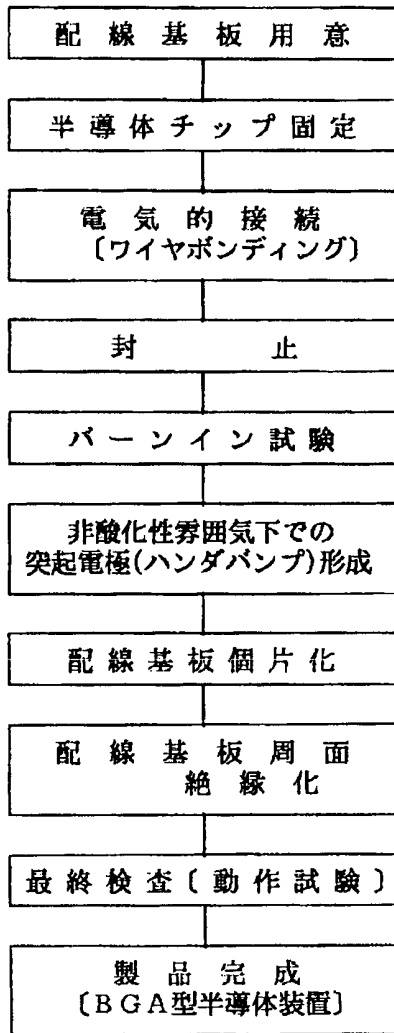 配線基板用意
半導体チップ固定
電気的接続
〔ワイヤボンディング〕
封止
バーンイン試験
非酸化性雰囲気下での
突起電極(ハンダバンプ)形成
配線基板個片化
配線基板周面
絶縁化
最終検査〔動作試験〕
製品完成
〔BGA型半導体装置〕